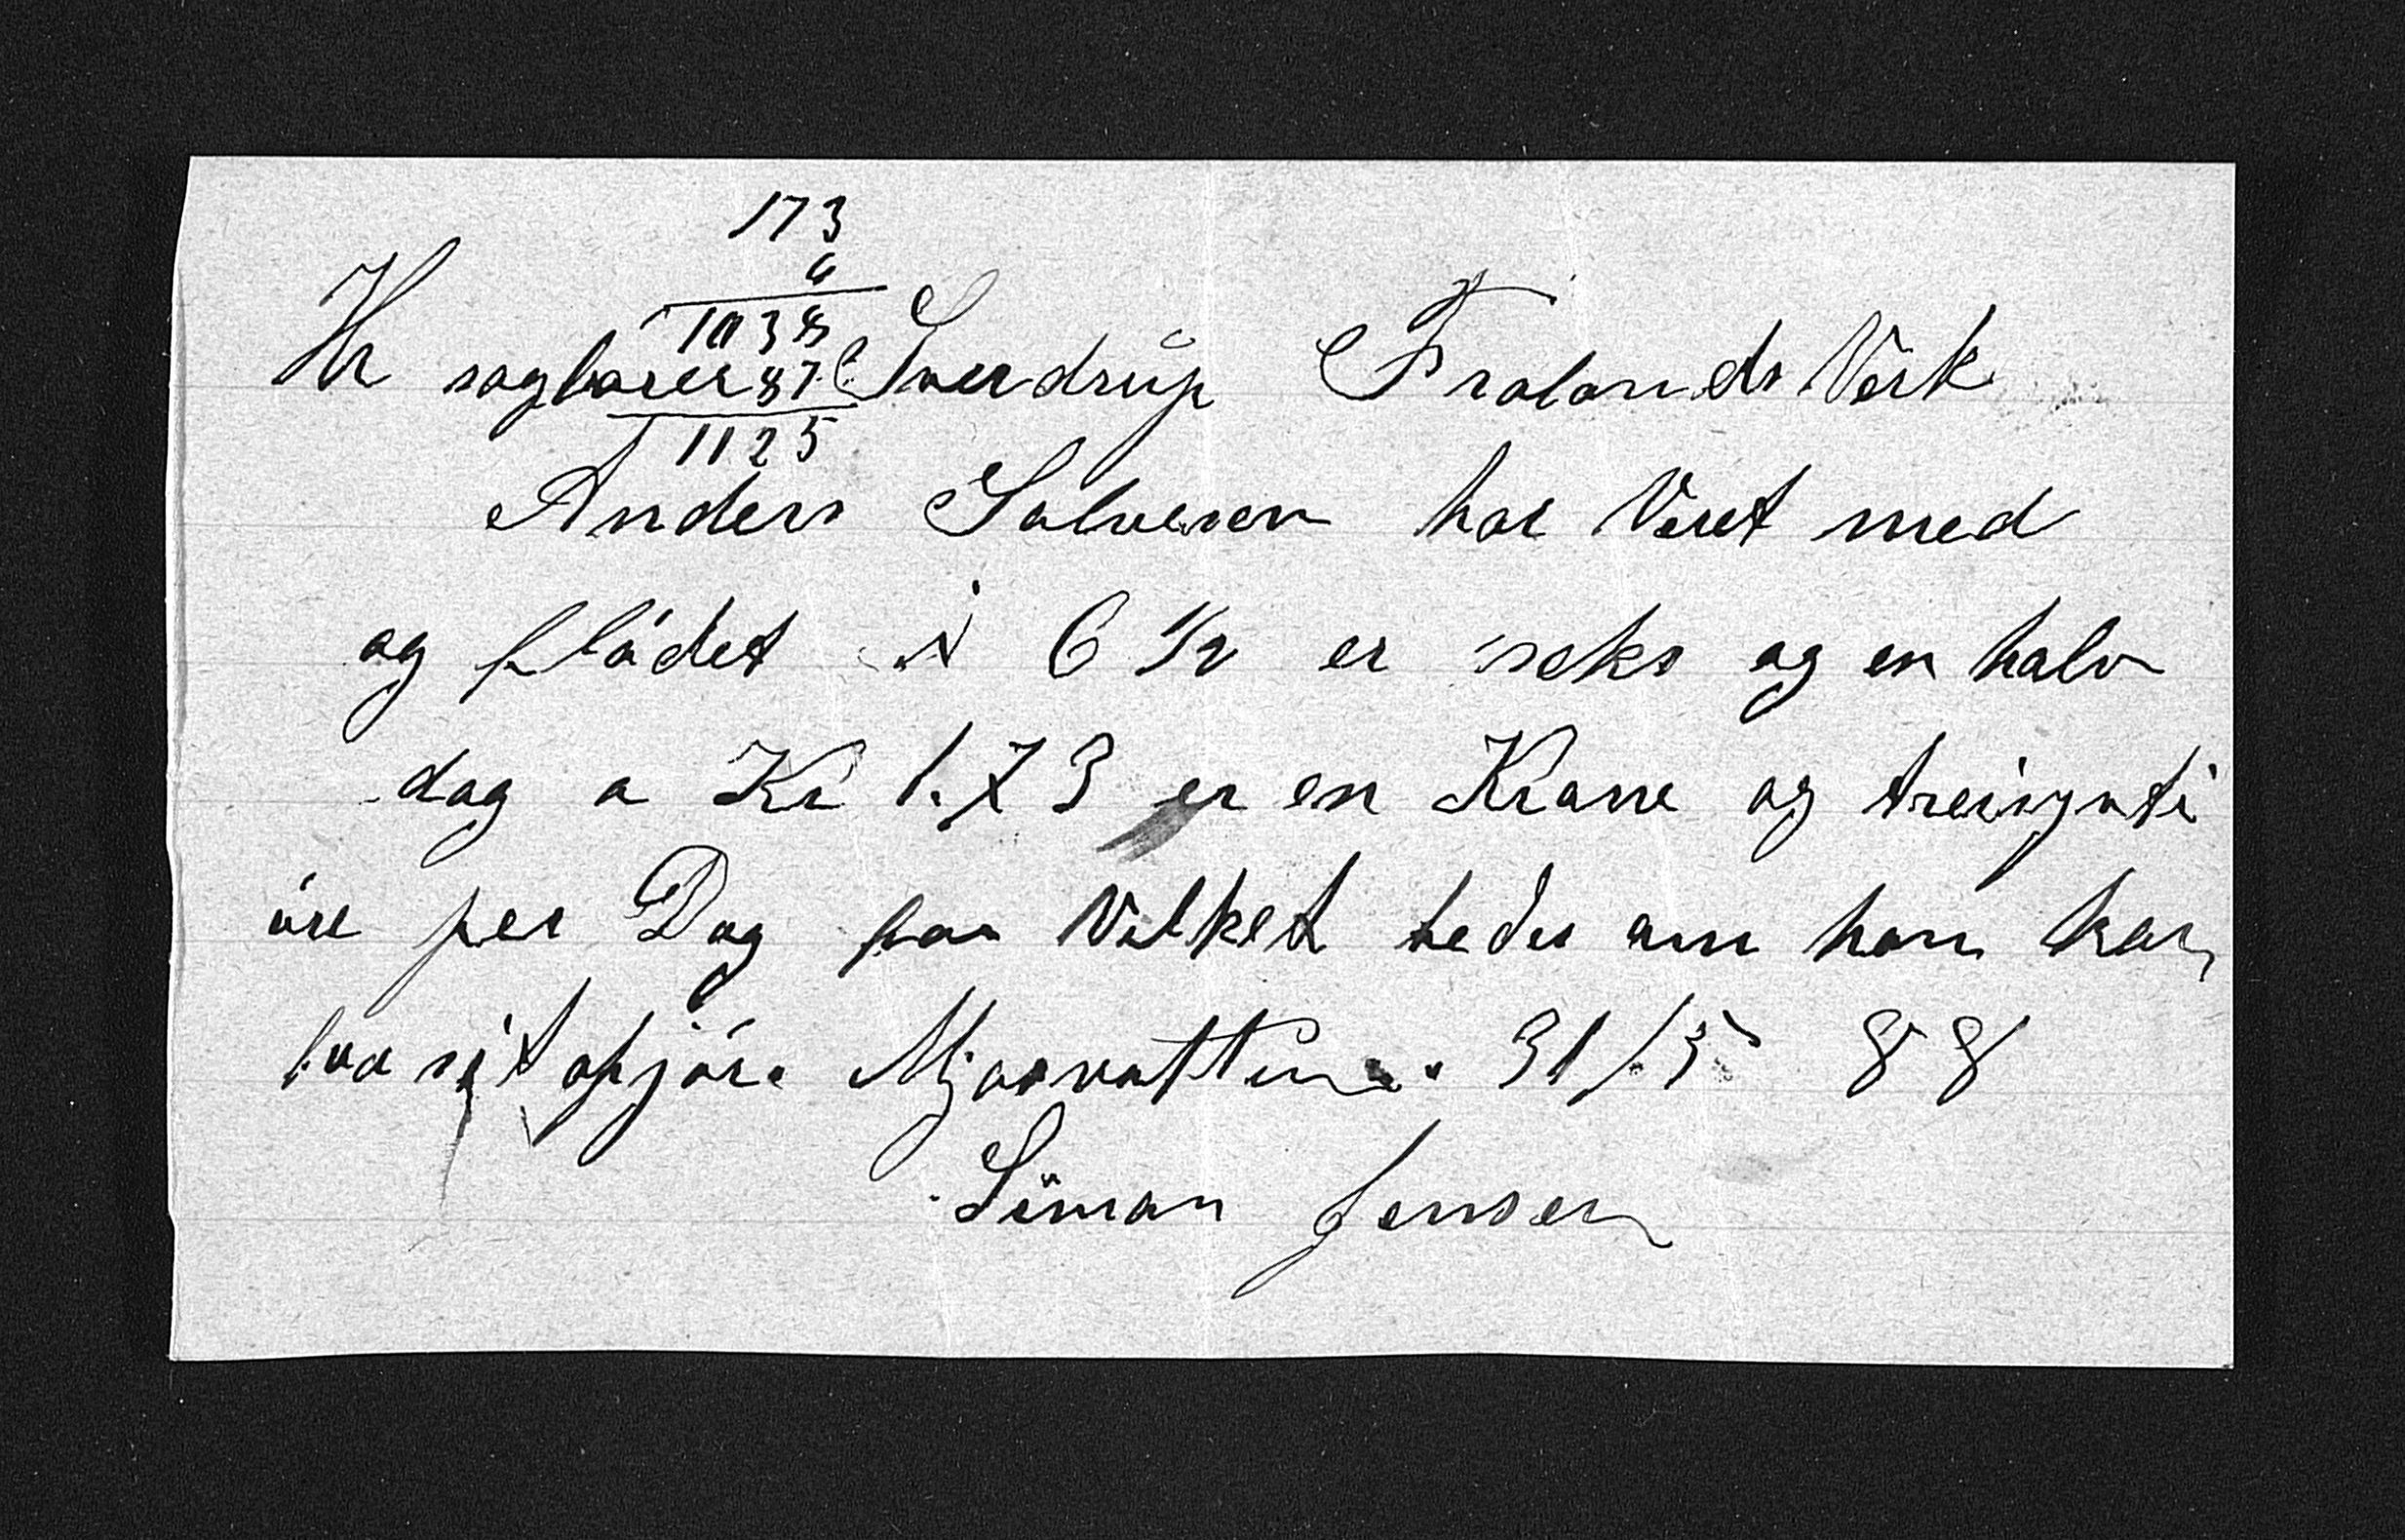 173
6
1038
87
1125
Hr sagbærer Sverdrup Frolands Verk
Anders Salvesen har Veret med
og flådet i 6 1/2 er seks og en halv
dag a Kr 1.73 er en Krone og treisynti
öre per Dag paa Vilket beder om han kan
faa sit opjör. Mjaavatten 31/5 88
Siman Jensen